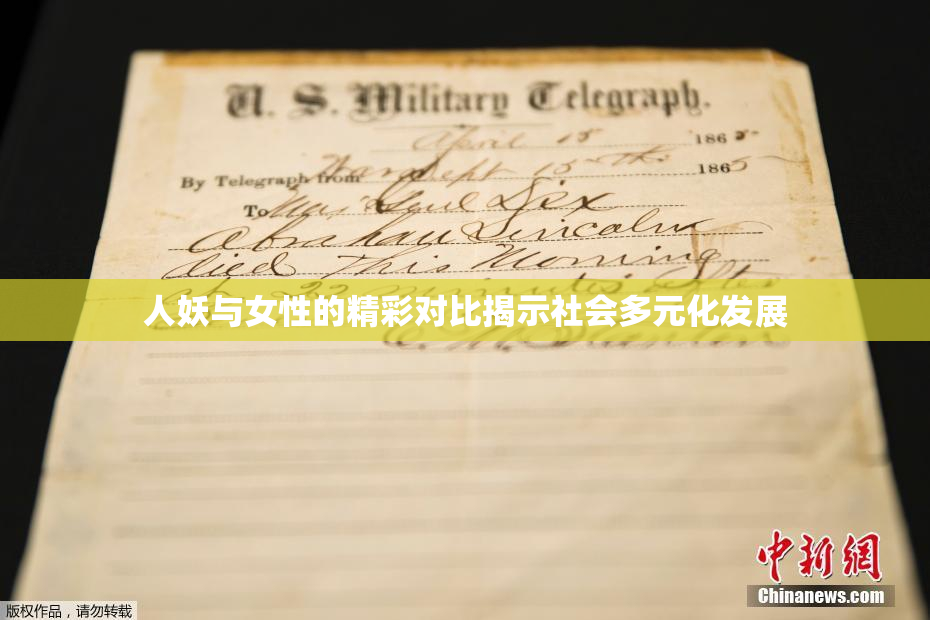 U. S. Military Telegraph.
April 15 1865
By Telegraph from War Dept 15th 1865
To Maj Genl Dix
Abraham Lincoln
died This Morning
at 22 minutes after
人妖与女性的精彩对比揭示社会多元化发展
E. M. Stanton
中新網
Chinanews.com
版权作品，请勿转载